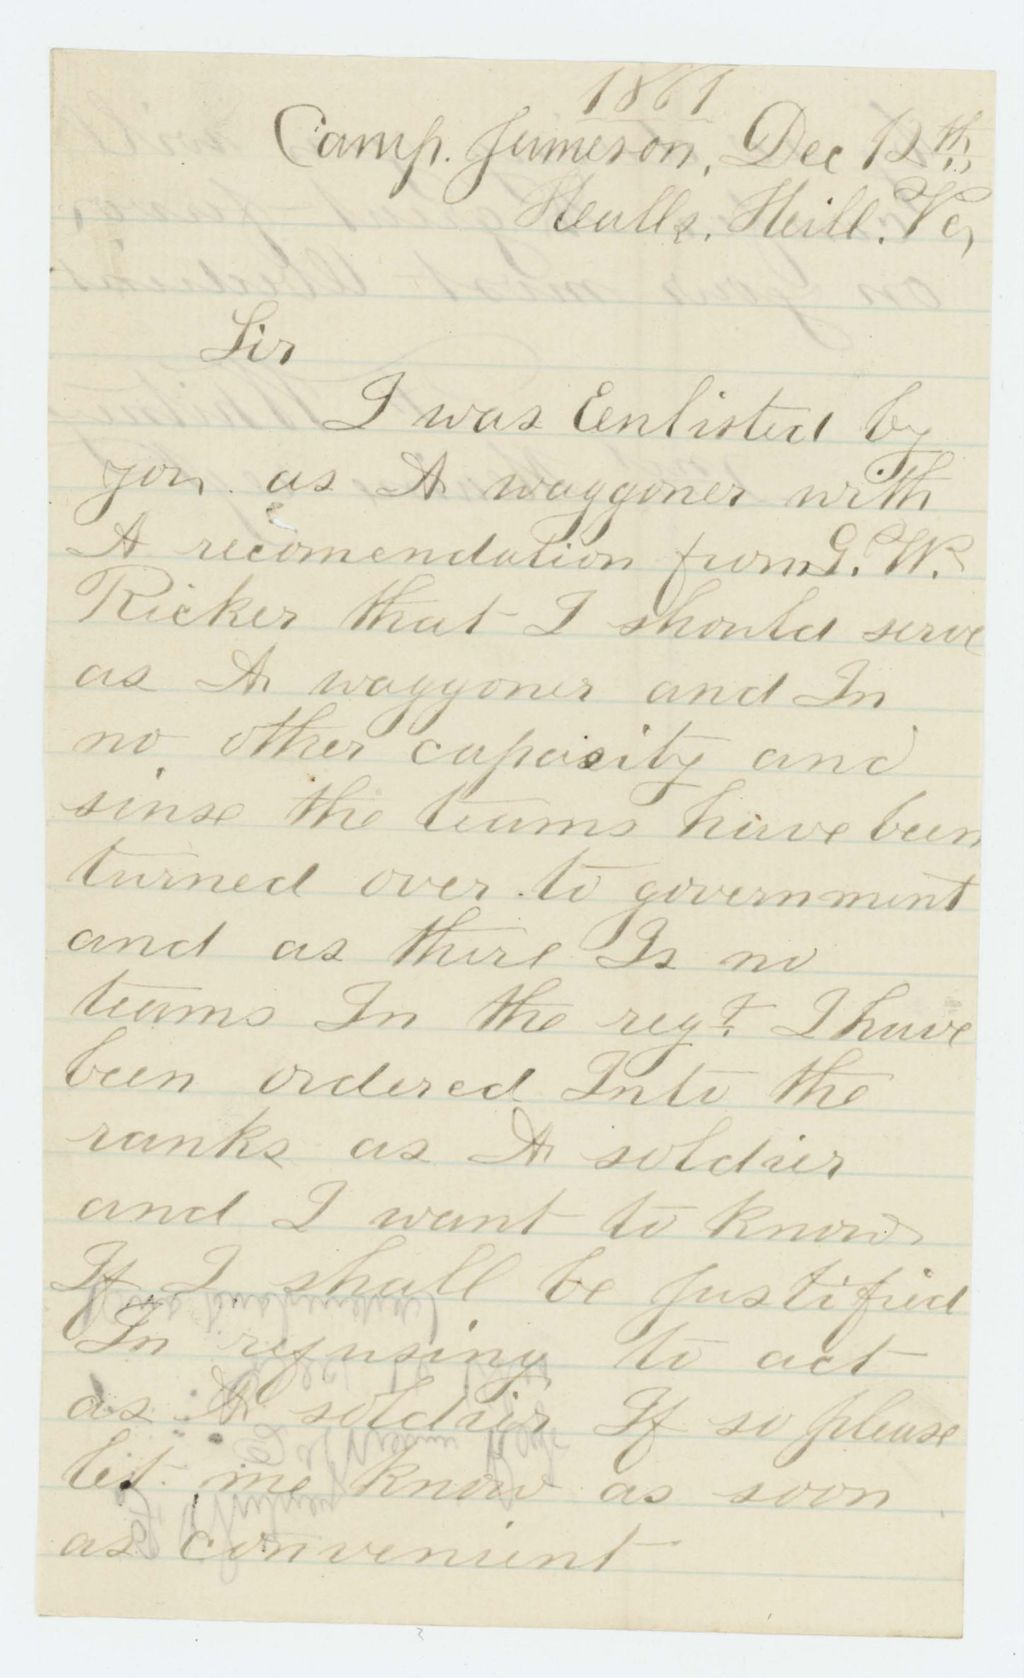 1861
Camp. Jameson, Dec 12th,
Halls, Heill. Va,
Sir
I was Eenlisted by
you as A waggoner with
A recomendation from G. W.
Ricker that I should serve
as A waggoner and In
no other capasity and
sinse the teams have been
turned over to government
and as there Is no
teams In the regt. I have
been ordered Into the
ranks as A soldier
and I want to know
If I shall be justified
In refusing to act
as A soldier If so please
let me know as soon
as convenient